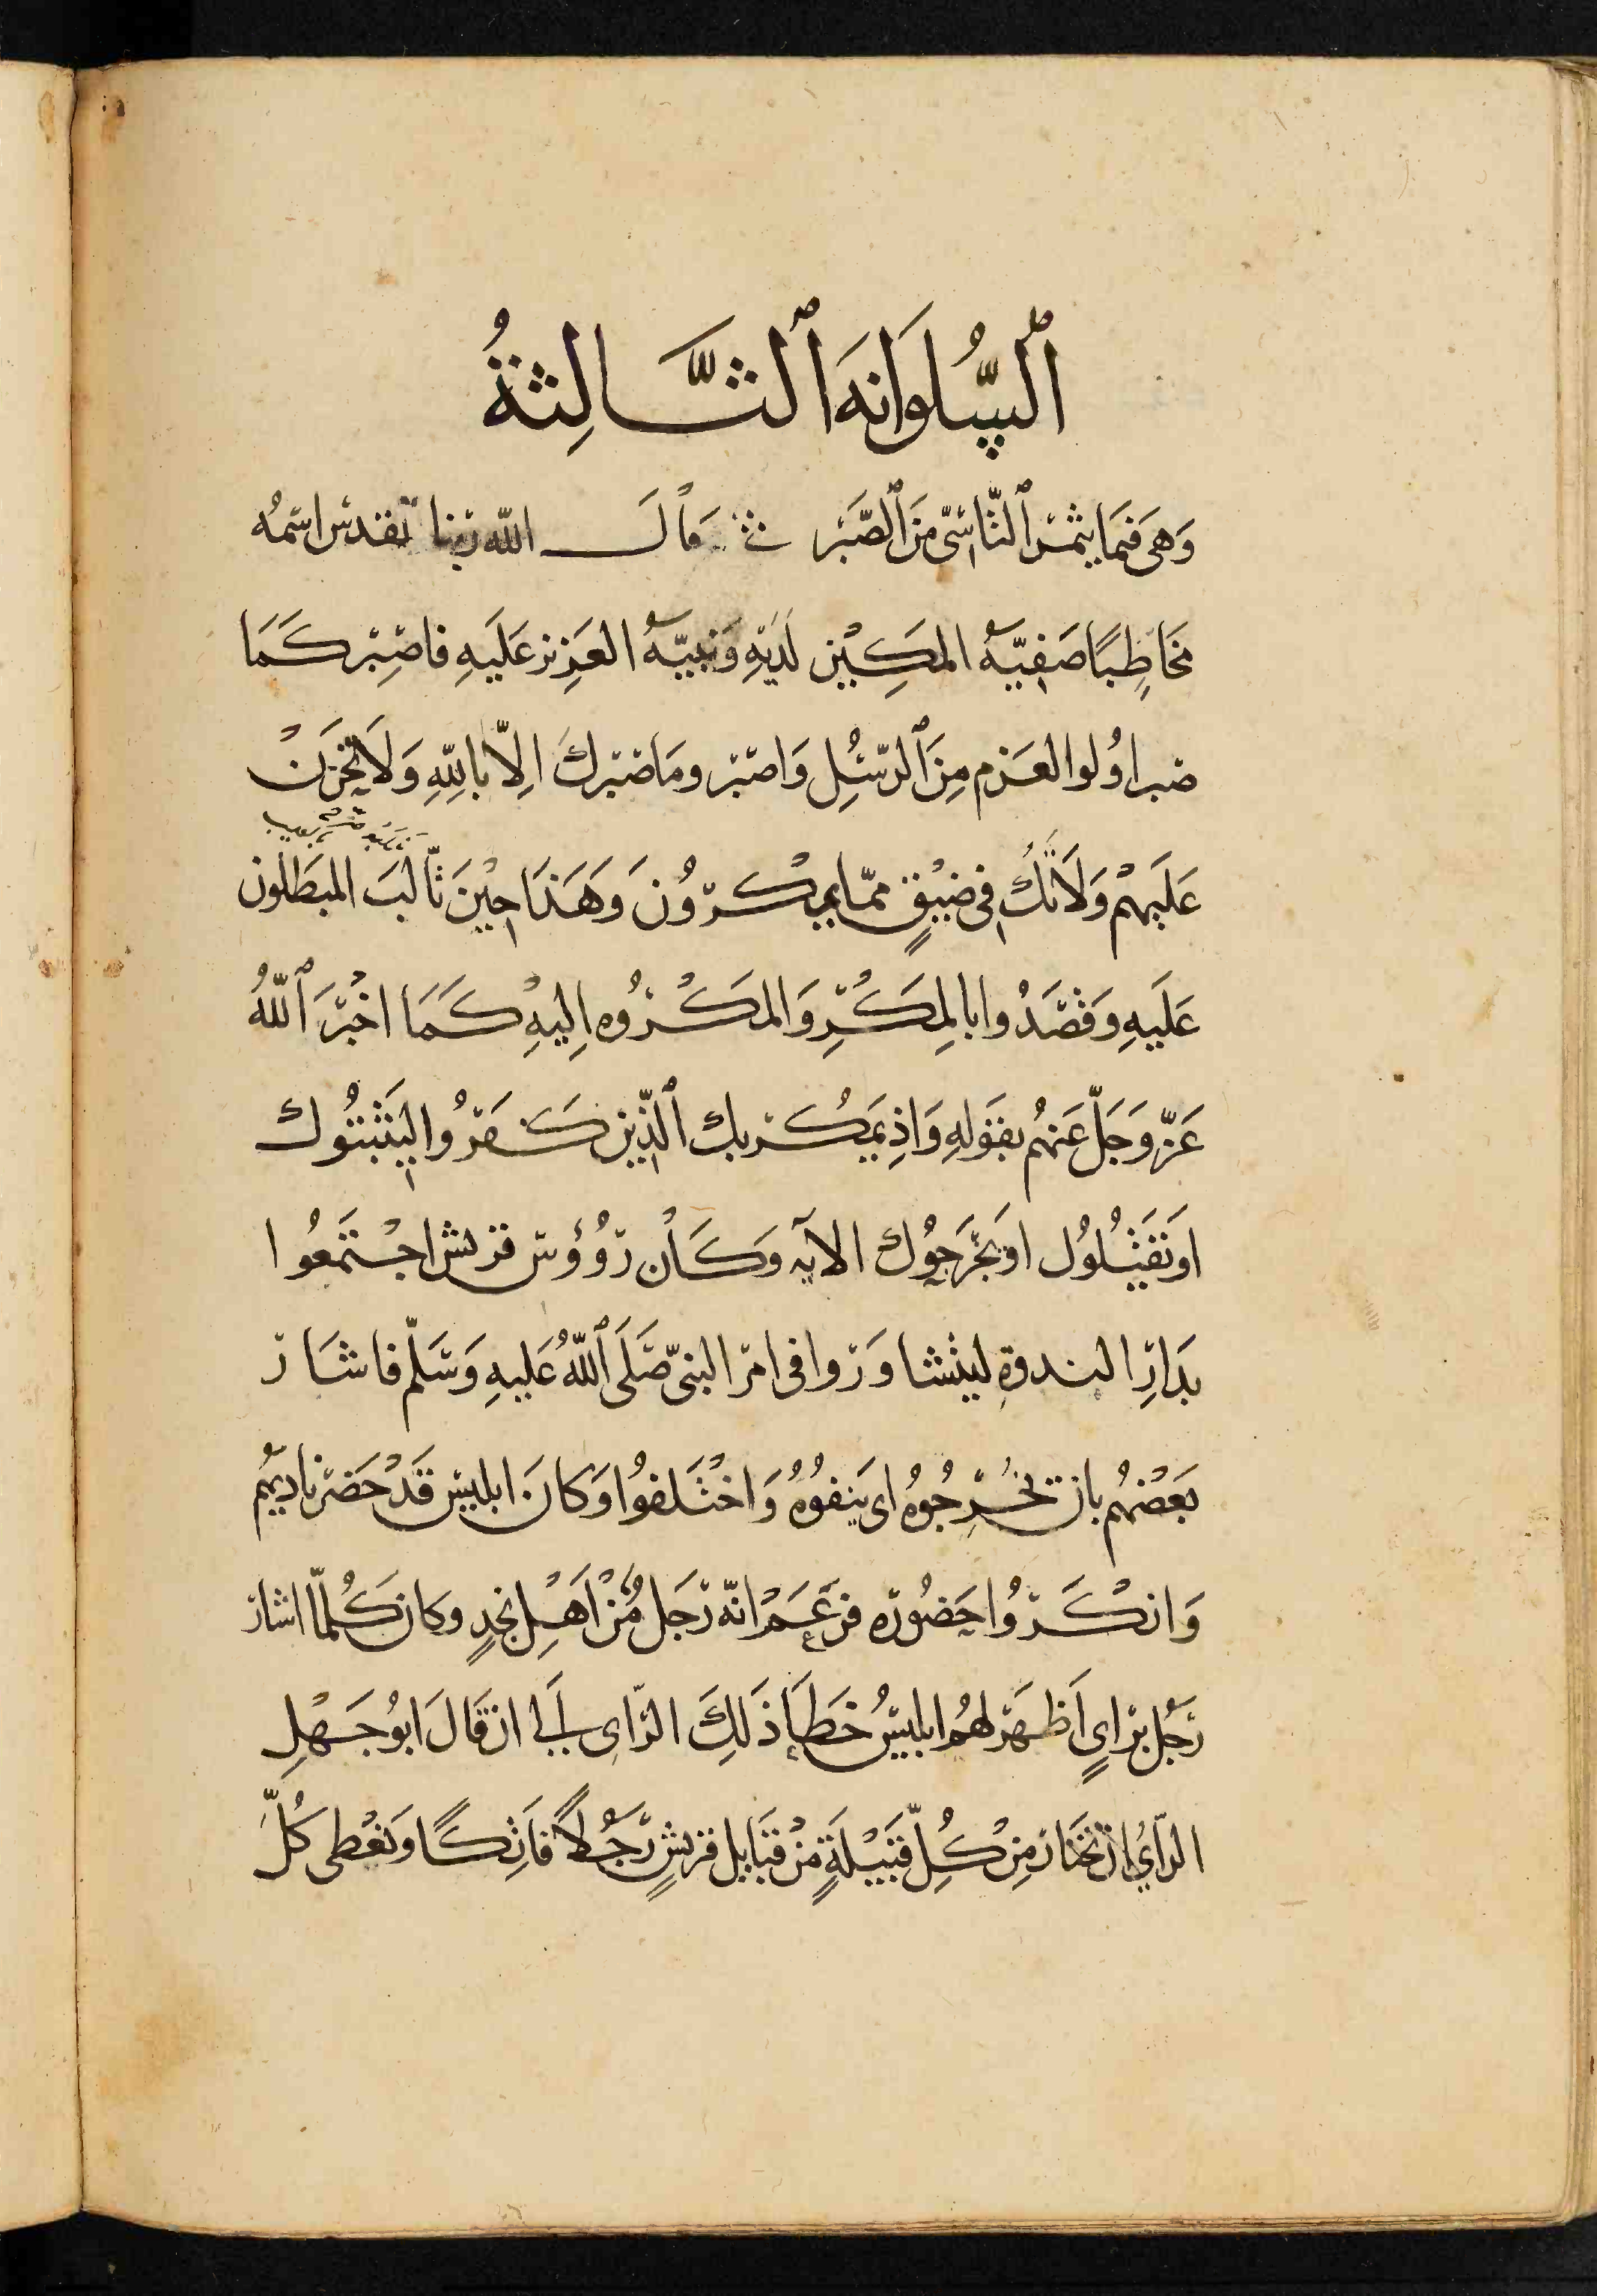 ٱلسُّلوَانَه ٱلثَّالِثةُ
وَهىَ فيمَا يثمر ٱلتَّاسّى مَنَ ٱلصَّبَر قَالَ الله ربنا تقدس اسمُه
مخَاطِبًا صَفيّهُ المكِيْن لدَيْهِ وَنبيّهُ العَزِيز عَلَيهِ فاصْبِر كَمَا
صبر اوُلوا العَزم مِنَ ٱلرّسُلِ وَاصبْر ومَا صَبرك اِلّا بالله وَلَا تحزَنْ
عَلَيهمْ وَلَا تكُ فى ضيْقٍ ممّا يمكرُونَ وَهَذَا حيْنَ تألّبَ المبطلون
عَلَيهِ وَقصَدُوا بالمكْرِ وَالمكْرُوه اِليهِ كَمَا اخْبَر ٱللّهُ
عَزّ وَجَلّ عَنهُم بقَولهِ وَاذِ يمَكُر بك ٱلذّين كَفَرُوا ليَثْبتُوك
اوَ يقَتلُوك اوَ يخرَجوُك الآيه وَكَأن رؤُوس قريش اجْتَمعُوا
بدَارِ الندوة ليتشاورَوا فى امر النبىّ صَلَى ٱللّهُ عَليهِ وَسَلّم فاشَار
بَعْضهُم بان تخُرِجُوهُ اى يَنفوُهُ وَاخْتَلفوُا وَكانَ ابليسَ قَدْ حَضر ناديهُم
وَانكَرُوا حَضُوره فزَعَمَ انّه رَجَل مُنْ اَهْلِ نجدٍ وكان كُلّما اشار
رَجُل برَايٍ اَظهَر لهُم ابليسُ خَطَأ ذَلِكَ الرّاى الى ان قَالَ ابوُ جَهْلِ
الرَايُ ان تختَار مِنْ كُلِّ قبَيْلَةٍ مِنْ قبَايل قريشٍ رَجُلاً فَاتِكًا وَنعْطى كُلَّ